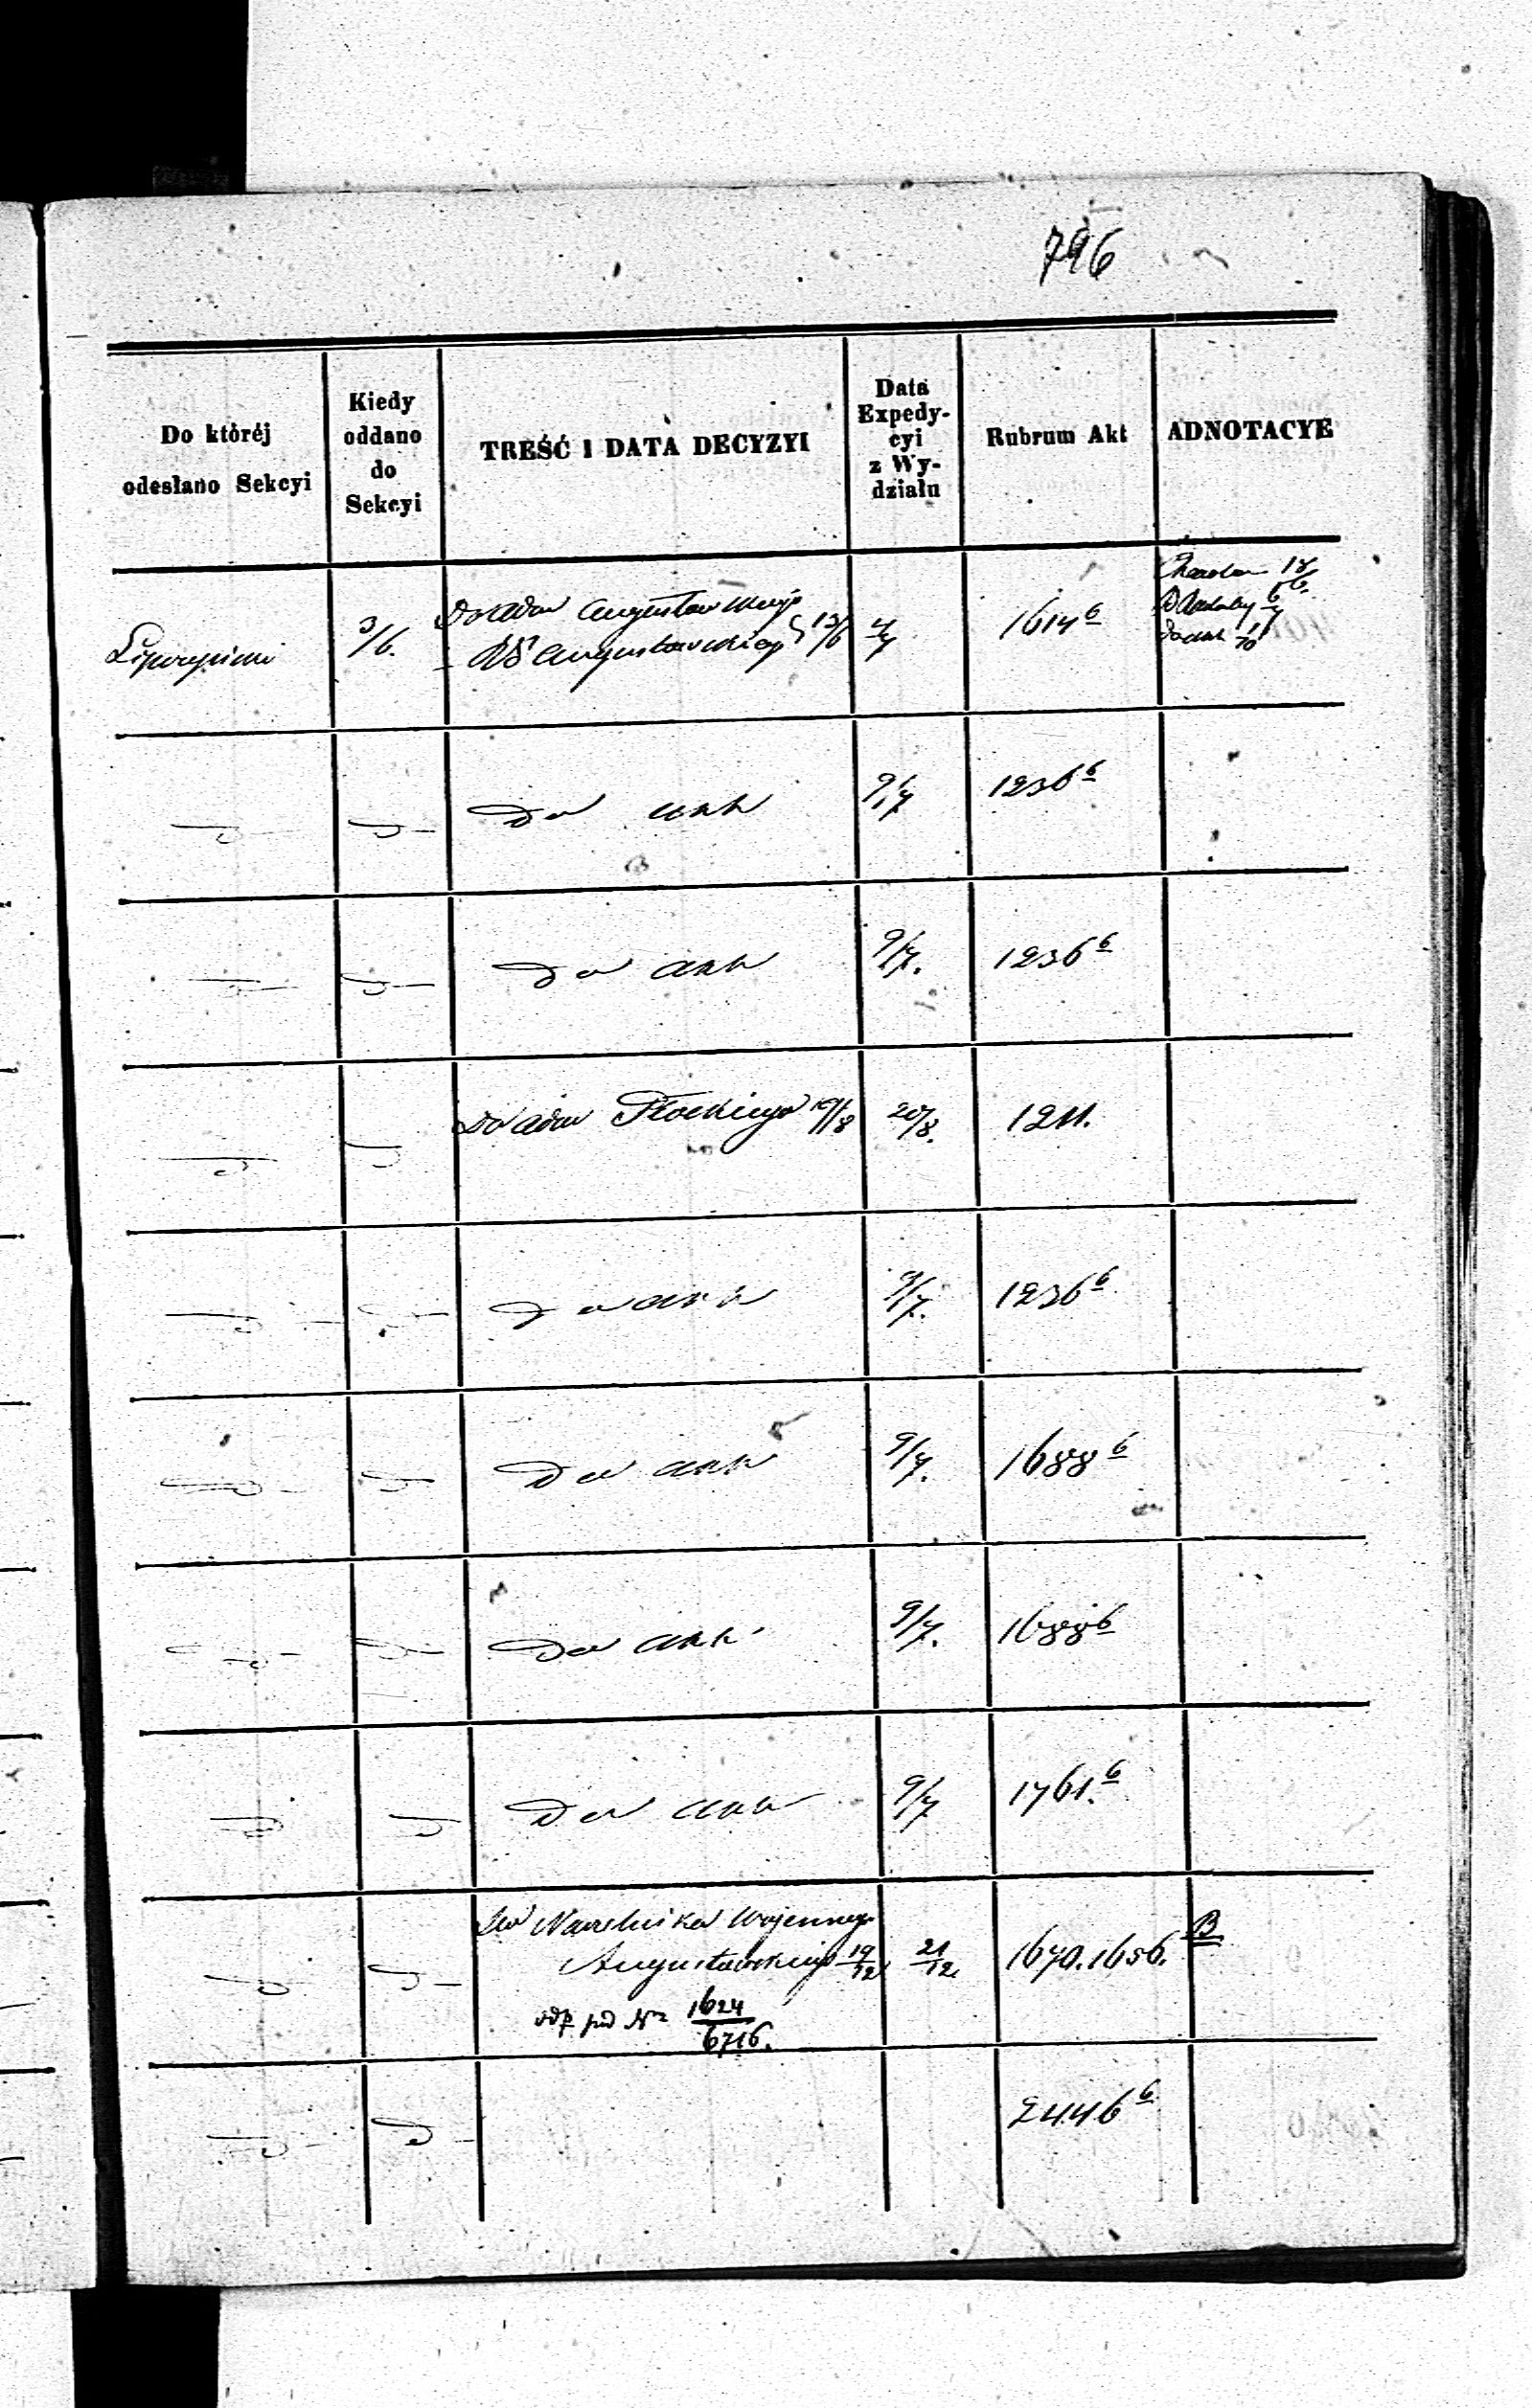 796
Do któréj
odesłano Sekcyi
Kiedy
oddano
do
Sekcyi
TREŚĆ I DATA DECYZYI
Data
Expedy-
cyi
z Wy-
działu
Rubrum Akt
ADNOTACYE
3/6.
Augustowskiego
Augustowskiego 13/6
4/7
1614 6
Do akt
9/7
1236 6
Do akt
9/7.
1236 6
Płockiego 19/8
20/8.
1211.
Do akt
9/7.
1236 6
Do akt
9/7.
1688 6
Do akt
9/7.
1688 6
Do akt
9/7
1761. 6
Do Naczelnika Wojennego
Augustowskiego 19/12
odp pod Nr 1624/6716.
21/12
1670.1656.
B
2446 6